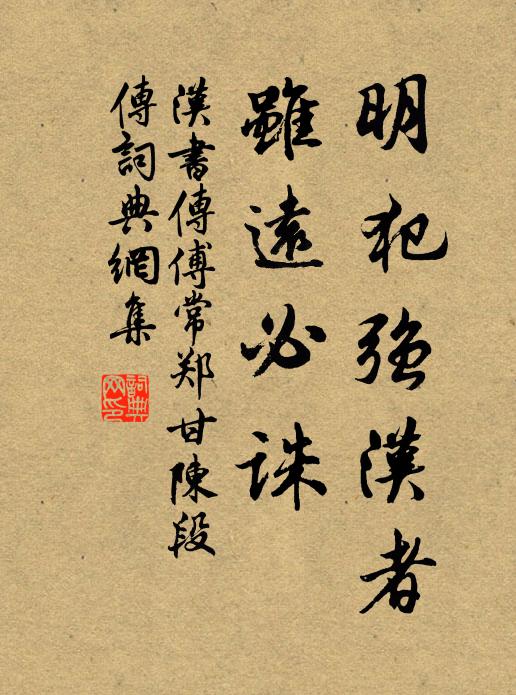 明犯強漢者
雖遠必誅
漢書傳傅常郑甘陳段
傳詞典網集
詞典網印